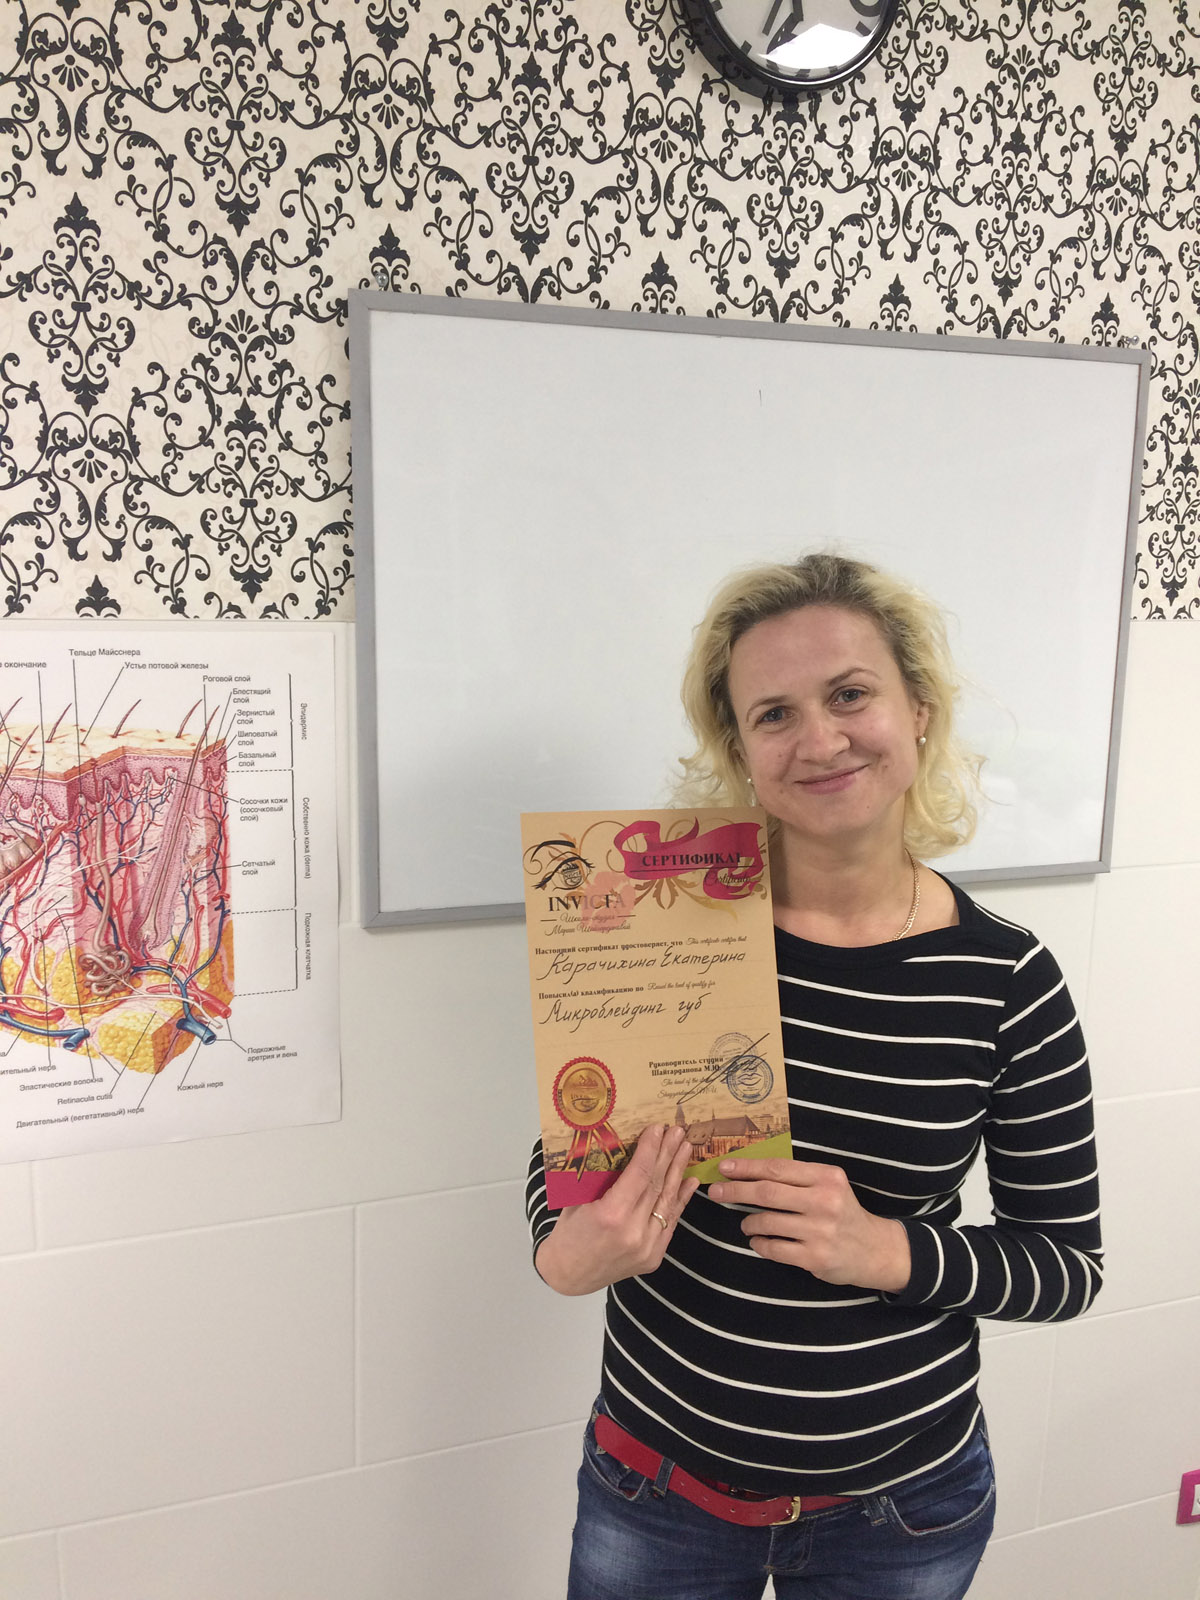 Тельце Майсснера
окончание
Устье потовой железы
Роговой слой
Блестящий
слой
Зернистый
слой
Шиповатый
слой
Базальный
слой
Эпидермис
Сосочки кожи
(сосочковый
слой)
Собственно кожа (derma)
Сетчатый
слой
Подкожная клетчатка
Подкожные
аретрия и вена
Кожный нерв
Эластические волокна
Retinacula cutis
Двигательный (вегетативный) нерв
СЕРТИФИКАТ
Certificate
INVICTA
Школа-студия
Марии Шайгардановой
Настоящий сертификат удостоверяет, что This certificate certifies that
Карачихина Екатерина
Повысил(а) квалификацию по Raised the level of qualify for
Микроблейдинг губ
Руководитель студии
Шайгарданова М.Ю.
The head of the